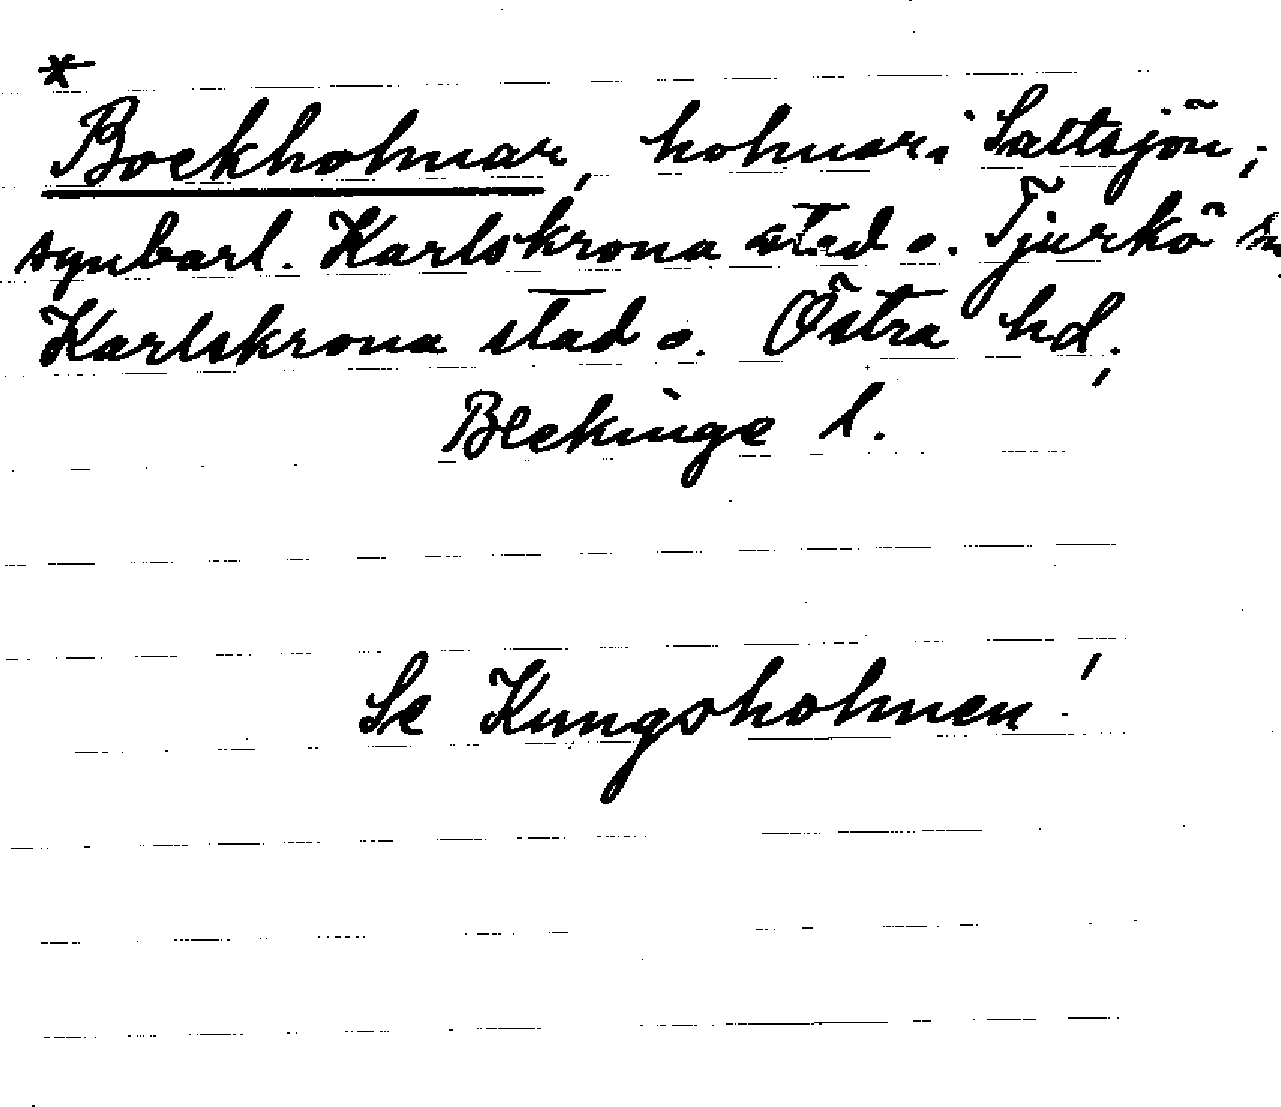 *
Bockholmar, holmar i Saltsjön;
synbarl. Karlskrona stad o. Tjurkö sn
Karlskrona stad o. Östra hd,
Blekinge l.
Se Kungsholmen!